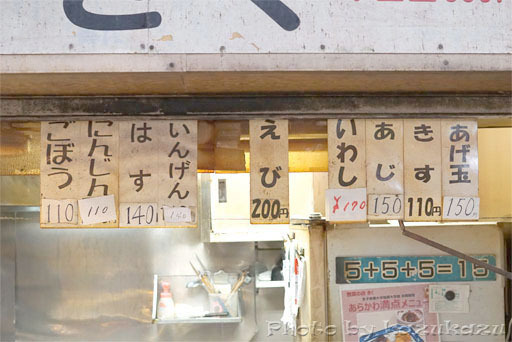 ごぼう 110
にんじん 110
はす 140
いんげん 140
えび 200円
いわし ¥170
あじ 150
きす 110円
あげ玉 150
5+5+5=15
あらかわ満点メニュー
Photo by kazukazu